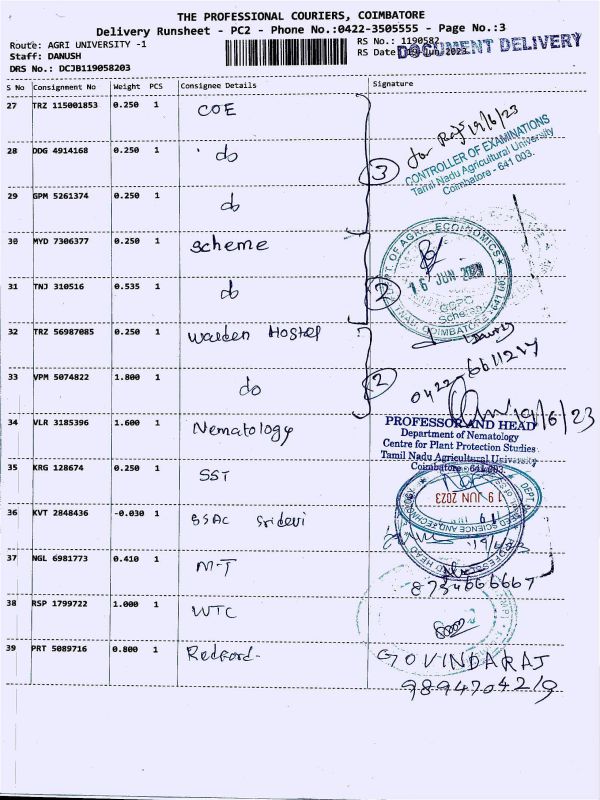 THE PROFESSIONAL COURIERS, COIMBATORE
Delivery Runsheet - PC2 - Phone No.:0422-3505555 - Page No.:3
Route: AGRI UNIVERSITY -1
Staff: DANUSH
DRS No.: DCJB119058203
RS No.: 1190582
RS Date: 19-Jun-2023
DOCUMENT DELIVERY
S No Consignment No Weight PCS Consignee Details Signature
27 TRZ 115001853 0.250 1 COE
19/6/23
CONTROLLER OF EXAMINATIONS
Tamil Nadu Agricultural University
Coimbatore - 641 003.
28 DDG 4914168 0.250 1 do
3
29 GPM 5261374 0.250 1 do
30 MYD 7306377 0.250 1 scheme
DEPT OF AGRL ECONOMICS
16 JUN 2023
31 TNJ 310516 0.535 1 do
2
32 TRZ 56987085 0.250 1 Warden Hostel
0422-6611217
33 VPM 5074822 1.800 1 do
2
19/6/23
34 VLR 3185396 1.600 1 Nematology
PROFESSOR AND HEAD
Department of Nematology
Centre for Plant Protection Studies
Tamil Nadu Agricultural University
Coimbatore - 641 003.
35 KRG 128674 0.250 1 SST
19 JUN 2023
36 KVT 2848436 -0.030 1 BSAC Sridevi
37 NGL 6981773 0.410 1 M-T
8754666667
38 RSP 1799722 1.000 1 WTC
39 PRT 5089716 0.800 1 Redford-
GOVINDARAJ
9894704219